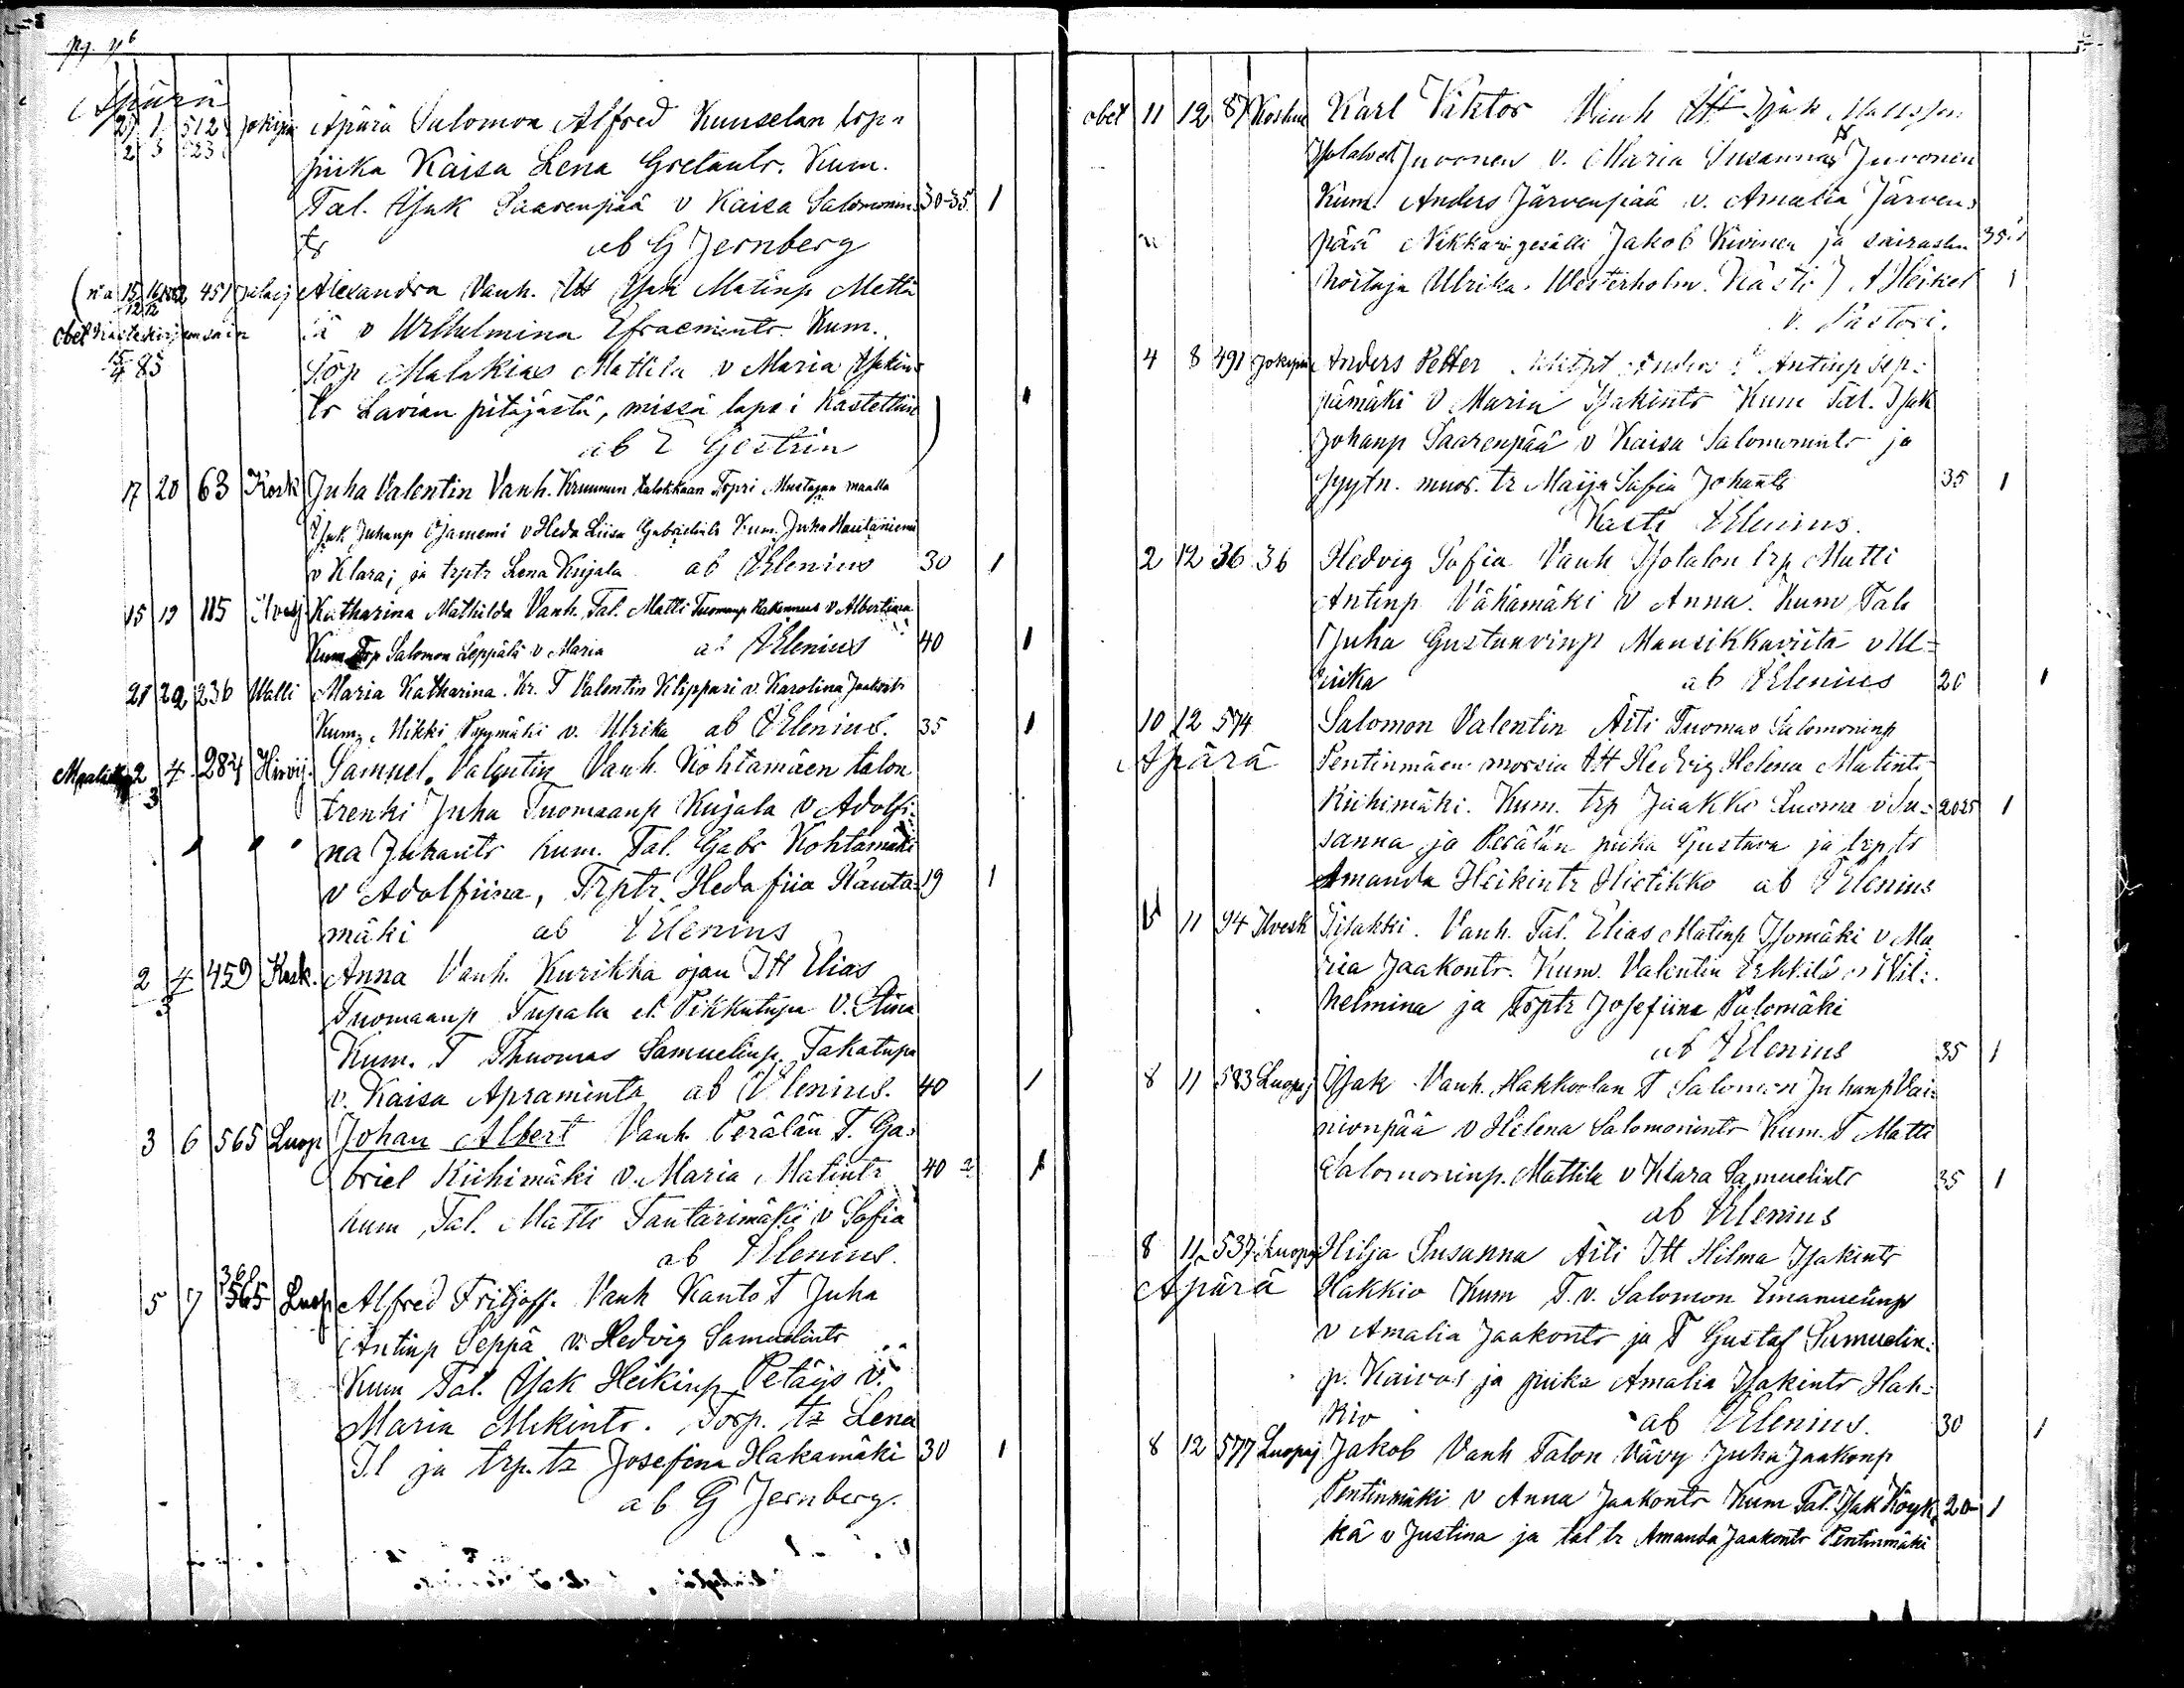 Äpärä
27 1 512 Jokipii Äpärä Salomon Alfred Kuuselan torp.
2 3 23 piika Kaisa Lena Gretantr. Kum.
Tal. Isak Saarenpää v Kaisa Salomonin 30-35. 1
tr ab G Jernberg
15 16 451 Jalasj Alexandra Vanh. Itt Isak Matinp Mettä
12 12 lä v Wilhelmina Efraemintr. Kum.
obet
15/4 85 Torp Malakias Mattila v Maria Isakin-
tr Lavian pitäjästä, missä lapsi kastettiin 1
ab E Gestrin
17 20 63 Kosk Juha Valentin Vanh. Kruunun Torpri Mustajan maalla
Isak Juhanp Ojaniemi v Heda Liisa Gabrielintr Kum. Juha Hautaniemi
v Klara; ja trptr Lena Kujala ab Elenius 30 1
15 19 115 Ilvesj Katharina Mathilda Vanh. Tal. Matti Tuomanp Rakennus v Albertiina
Kum Trp Salomon Leppälä v Maria ab Elenius 40 1
21 22 236 Walli Maria Katharina. Kr. T Valentin Klippari v. Karolina Jaakontr
Kum. Mikki Pyymäki v. Ulrika ab Elenius. 35 1
Maalisk 2/3 4 284 Hirvij. Samuel Valentin Vanh. Kohtamäen talon
trenki Juha Tuomaanp Kujala v Adolfi-
na Juhantr kum. Tal. Gabr Kohtamäki
v Adolfiina, Trptr. Hedafiia Hauta- 19 1
mäki ab Elenius
2/3 4 459 Kosk. Anna Vanh. Kurikka ojan Itt Elias
Tuomaanp Tupala el. Pikkutupa v. Stina
Kum. T Thuomas Samuelinp. Takatupa
v. Kaisa Apramintr ab Elenius. 40 1
3 6 565 Luop Johan Albert Vanh. Perälän T. Ga-
briel Riihimäki v. Maria Matintr 40 1
kum Tal. Matti Tantarimäki v Sofia
ab Elenius.
360
5 7 565 Luop Alfred Fritjoff. Vanh Kanto T Juha
Antinp Seppä v. Hedvig Samuelintr
Kum Tal. Isak Heikinp Petäys v.
Maria Mikintr. Torp. tr Lena
I.l ja trp. tr Josefina Hakamäki 30 1
ab G Jernberg.
obet 11 12 87 Koskue Karl Viktor Vanh Itt Isak Mattsson
Juvonen v. Maria Susanna Juvonen
Kum. Anders Järvenpää v. Amalia Järven-
pää Nikkari gesälli Jakob Kivinen ja sairasten 35
hoitaja Ulrika Westerholm. Kasti J A Heikel 1
V. Pastori.
4 8 491 Jokipii Anders Petter Antinp Sep-
pämäki v Maria Isakintr Kum Tal. Isak
Johanp Saarenpää v Kaisa Salomonintr ja
Syytn. muor. tr Maija Safia Johantr 35 1
Kasti Elenius.
2 12 36 36 Hedvig Sofia Vanh Isotalon trp Matti
Antinp Vähämäki v Anna. Kum Tal.
Juha Gustaavinp Mansikkaviita v Ul-
rika ab Elenius 20 1
10 12 574 Salomon Valentin Äiti Tuomas Salomoninp
Äpärä Pentinmäen morsia Itt Hedvig Helena Matintr
Riihimäki. Kum. trp Jaakko Luoma v Su- 2025 1
sanna ja Perälän piika Gustava ja trptr
Amanda Heikintr Hietikko ab Elenius
11 94 Ilvesk Iisakki. Vanh. Tal. Elias Matinp Isomäki v Ma
ria Jaakontr. Kum. Valentin Erkkilä v Wil-
helmina ja Torptr Josefiina Palomäki
ab Elenius 35 1
8 11 583 Luopaj Isak Vanh. Hakkolan T Salomon Juhanp Vai-
nionpää v Helena Salomonintr Kum. T Matti
Salomoninp. Mattila v Klara Samuelintr 35 1
ab Elenius
8 11 537 Luopaj Hilja Susanna Äiti Itt Hilma Isakintr
Äpärä Hakkio Kum T. v. Salomon Emanuelinp
v Amalia Jaakontr ja T Gustaf Samuelin-
p. Kaivos ja piika Amalia Isakintr Hak-
kio ab Elenius. 30 1
8 12 577 Luopaj Jakob Vanh Talon Vävy Juha Jaakonp
Pentinmäki v Anna Jaakontr Kum Tal. Isak Köyk- 20 1
kä v Justina ja tal tr Amanda Jaakontr Pentinmäki